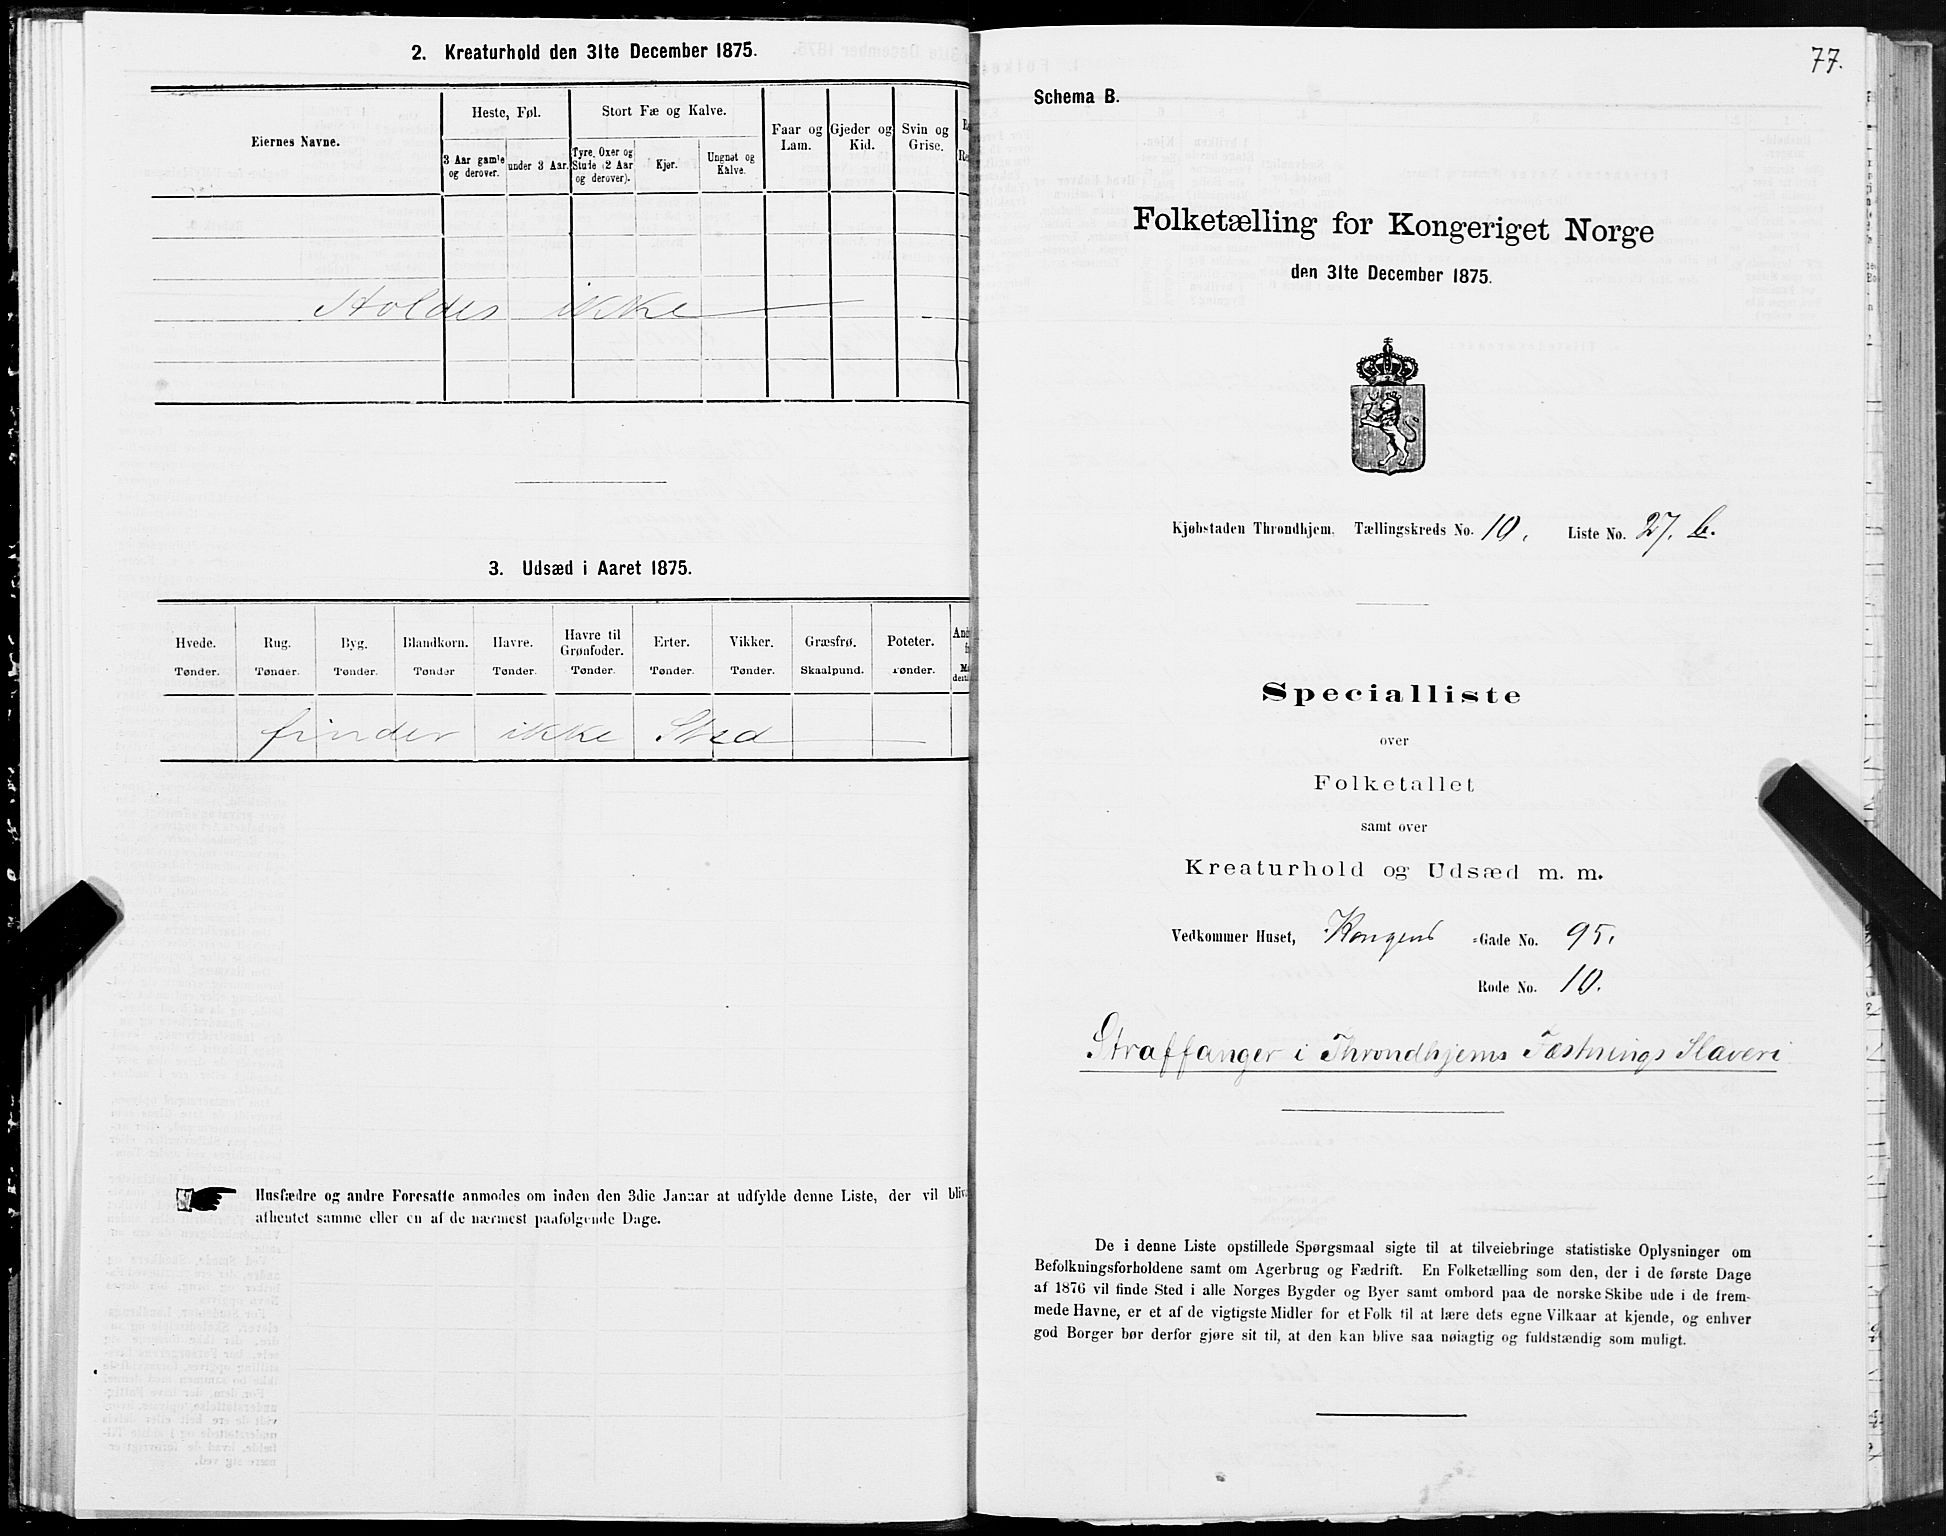 2. Kreaturhold den 31te December 1875.
Eiernes Navne.
Heste, Føl.
Stort Fæ og Kalve.
Faar og Lam.
Gjeder og Kid.
Svin og Grise.
3 Aar gamle og derover.
under 3 Aar.
Tyre, Oxer og Stude (2 Aar og derover).
Kjør.
Ungnøt og Kalve.
Holdes ikke
3. Udsæd i Aaret 1875.
Hvede. Rug. Byg. Blandkorn. Havre. Havre til Grønfoder. Erter. Vikker. Græsfrø. Poteter.
Tønder. Tønder. Tønder. Tønder Tønder. Tønder. Tønder. Tønder. Skaalpund. Tønder.
finder ikke Sted
Husfædre og andre Foresatte anmodes om inden den 3die Januar at udfylde denne Liste, der vil
afhentet samme eller en af de nærmest paafølgende Dage.
77.
Schema B.
Folketælling for Kongeriget Norge
den 31te December 1875.
Kjøbstaden Throndhjem. Tællingskreds No. 10. Liste No. 27. b.
Specialliste
over
Folketallet
samt over
Kreaturhold og Udsæd m. m.
Vedkommer Huset, Kongens -Gade No. 95.
Rode No. 10.
Straffanger i Throndhjems Fæstnings Slaveri
De i denne Liste opstillede Spørgsmaal sigte til at tilveiebringe statistiske Oplysninger om
Befolkningsforholdene samt om Agerbrug og Fædrift. En Folketælling som den, der i de første Dage
af 1876 vil finde Sted i alle Norges Bygder og Byer samt ombord paa de norske Skibe ude i de frem-
mede Havne, er et af de vigtigste Midler for et Folk til at lære dets egne Vilkaar at kjende, og enhver
god Borger bør derfor gjøre sit til, at den kan blive saa nøiagtig og fuldstændig som muligt.